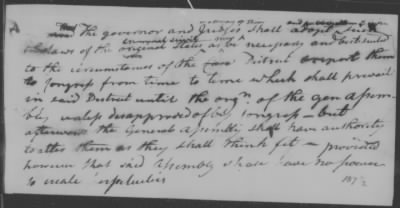 The governor and judges shall adopt such
laws of the original States as be necessary and best suited
to the circumstances of the District & report them
to Congress from time to time which shall prevail
in said District until the orgn. of the gen Assem
bly unless disapproved of by Congress – but
afterwards the General Assembly shall have authority
to alter them as they shall think fit – provided
however that said Assembly shall have no power
to create perpetuities